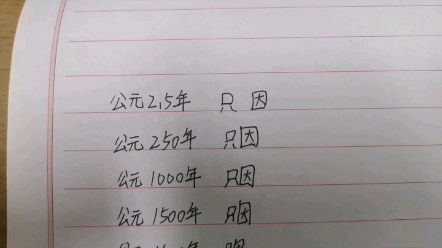 公元2.5年 只 因
公元250年 只因
公元1000年 只因
公元1500年 只因